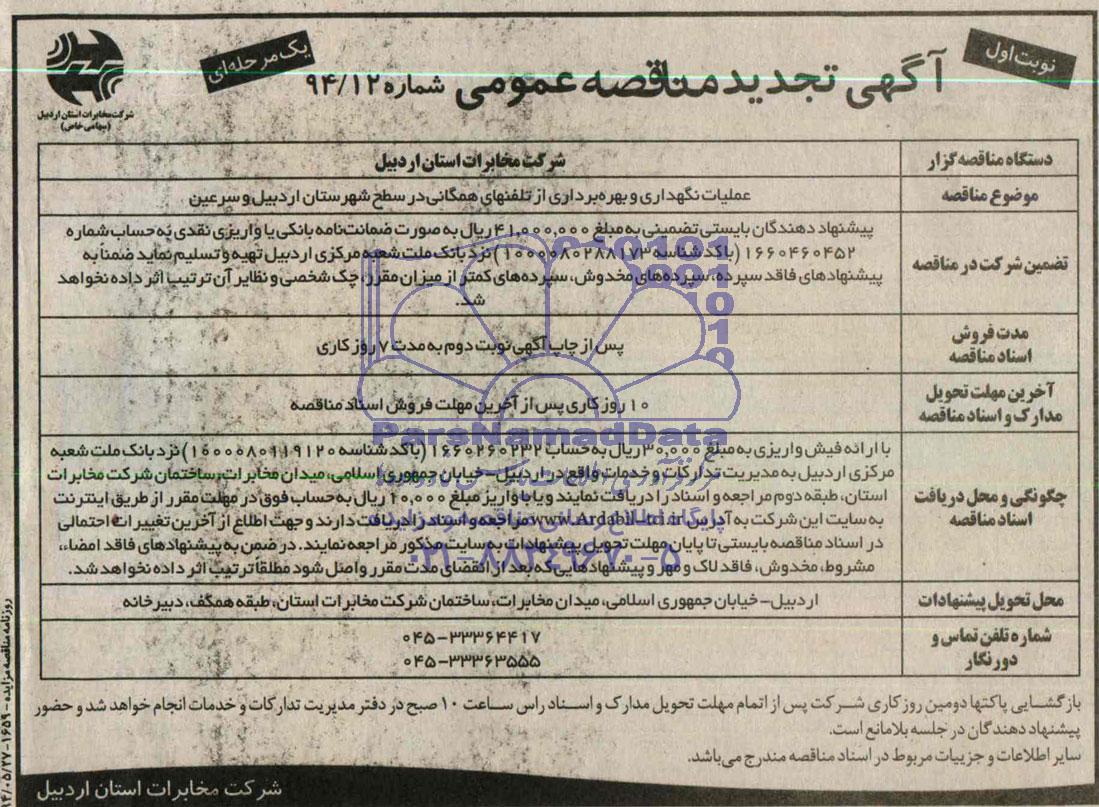 نوبت اول
آگهی تجدید مناقصه عمومی شماره ۹۴/۱۲
یک مرحله‌ای
شرکت مخابرات استان اردبیل
(سهامی خاص)
دستگاه مناقصه گزار
شرکت مخابرات استان اردبیل
موضوع مناقصه
عملیات نگهداری و بهره‌برداری از تلفنهای همگانی در سطح شهرستان اردبیل و سرعین
تضمین شرکت در مناقصه
پیشنهاد دهندگان بایستی تضمینی به مبلغ ۴۱,۰۰۰,۰۰۰ ریال به صورت ضمانت‌نامه بانکی یا واریزی نقدی به حساب شماره
۱۶۶۰۴۶۰۴۵۲ (با کد شناسه ۱۰۰۰۰۸۰۲۸۸۱۷۳) نزد بانک ملت شعبه مرکزی اردبیل تهیه و تسلیم نماید ضمناً به
پیشنهادهای فاقد سپرده، سپرده‌های مخدوش، سپرده‌های کمتر از میزان مقرر، چک شخصی و نظایر آن ترتیب اثر داده نخواهد
شد.
مدت فروش
اسناد مناقصه
پس از چاپ آگهی نوبت دوم به مدت ۷ روز کاری
آخرین مهلت تحویل
مدارک و اسناد مناقصه
۱۰ روز کاری پس از آخرین مهلت فروش اسناد مناقصه
چگونگی و محل دریافت
اسناد مناقصه
با ارائه فیش واریزی به مبلغ ۳۰,۰۰۰ ریال به حساب ۱۶۶۰۲۶۰۲۳۲ (با کد شناسه ۱۰۰۰۰۸۰۱۱۹۱۲۰) نزد بانک ملت شعبه
مرکزی اردبیل به مدیریت تدارکات و خدمات واقع در اردبیل - خیابان جمهوری اسلامی، میدان مخابرات، ساختمان شرکت مخابرات
استان، طبقه دوم مراجعه و اسناد را دریافت نمایند و یا با واریز مبلغ ۲۰,۰۰۰ ریال به حساب فوق در مهلت مقرر از طریق اینترنت
به سایت این شرکت به آدرس www.Ardabil-tci.ir مراجعه و اسناد را دریافت دارند و جهت اطلاع از آخرین تغییرات احتمالی
در اسناد مناقصه بایستی تا پایان مهلت تحویل پیشنهادات به سایت مذکور مراجعه نمایند. در ضمن به پیشنهادهای فاقد امضاء،
مشروط، مخدوش، فاقد لاک و مهر و پیشنهادهایی که بعد از انقضای مدت مقرر واصل شود مطلقاً ترتیب اثر داده نخواهد شد.
محل تحویل پیشنهادات
اردبیل - خیابان جمهوری اسلامی، میدان مخابرات، ساختمان شرکت مخابرات استان، طبقه همگف، دبیرخانه
شماره تلفن تماس و
دورنگار
۰۴۵-۳۳۳۶۴۴۱۷
۰۴۵-۳۳۳۶۳۵۵۵
بازگشایی پاکتها دومین روز کاری شرکت پس از اتمام مهلت تحویل مدارک و اسناد راس ساعت ۱۰ صبح در دفتر مدیریت تدارکات و خدمات انجام خواهد شد و حضور
پیشنهاد دهندگان در جلسه بلامانع است.
سایر اطلاعات و جزییات مربوط در اسناد مناقصه مندرج می‌باشد.
شرکت مخابرات استان اردبیل
ParsNamadData
۰۲۱-۸۸۳۴۹۶۷۰-۵